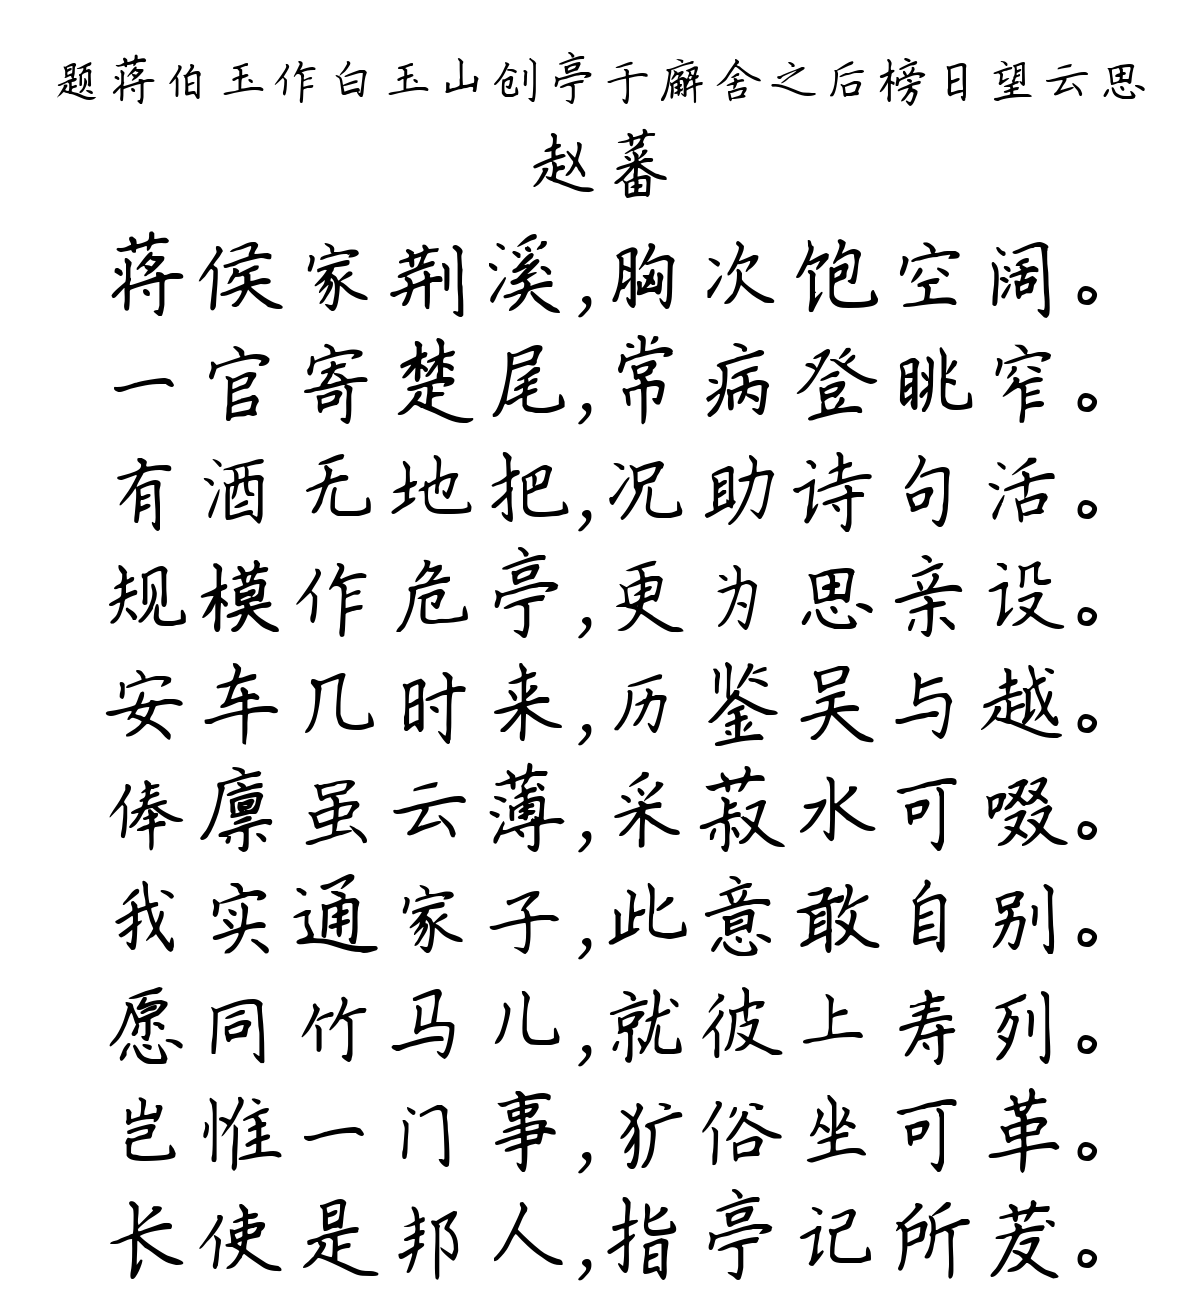 题蒋伯玉作白玉山创亭于廨舍之后榜日望云思
赵蕃
蒋侯家荆溪,胸次饱空阔。
一官寄楚尾,常病登眺窄。
有酒无地把,况助诗句活。
规模作危亭,更为思亲设。
安车几时来,历鉴吴与越。
俸廪虽云薄,采菽水可啜。
我实通家子,此意敢自别。
愿同竹马儿,就彼上寿列。
岂惟一门事,犷俗坐可革。
长使是邦人,指亭记所茇。